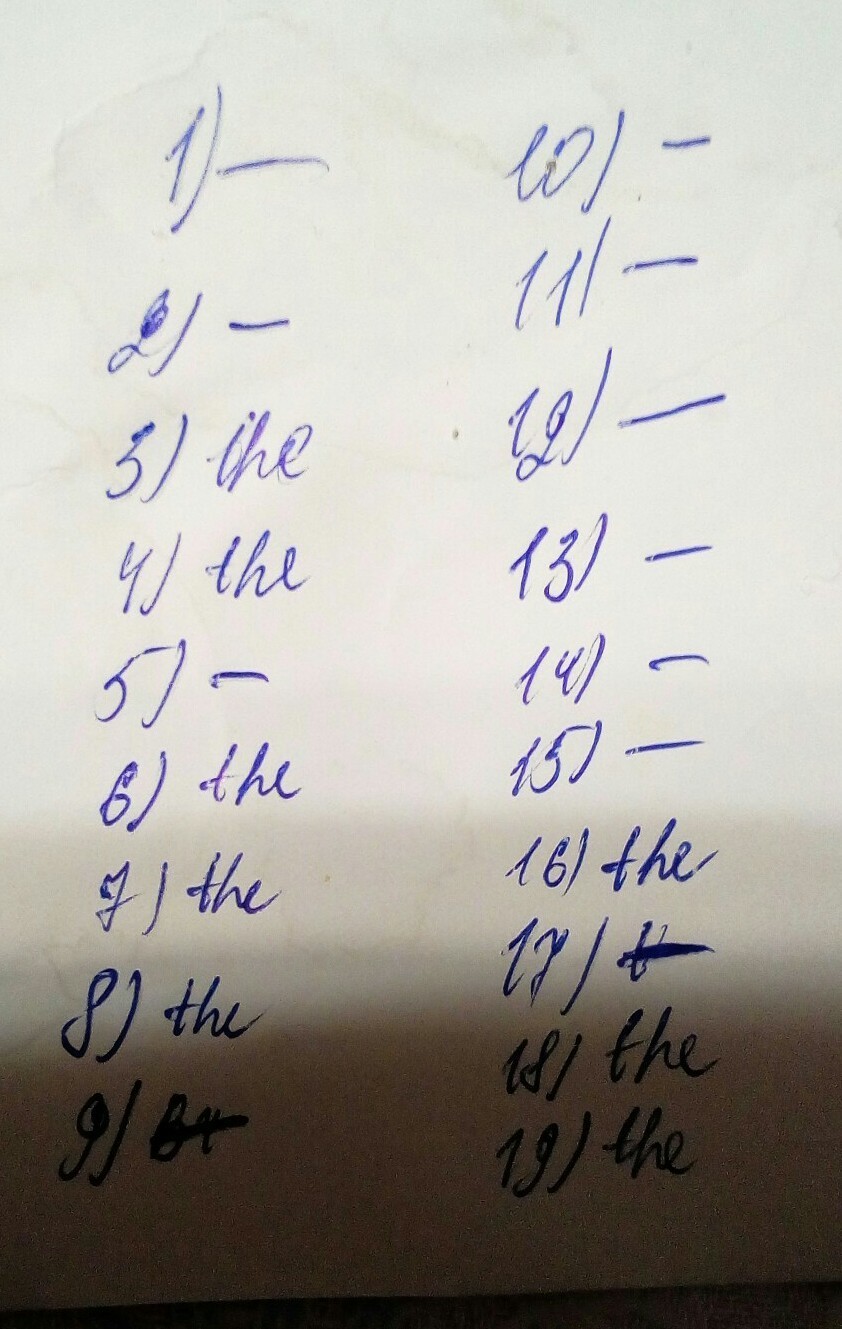 1) —
2) —
3) the
4) the
5) —
6) the
7) the
8) the
9)
10) —
11) —
12) —
13) —
14) —
15) —
16) the
17) —
18) the
19) the